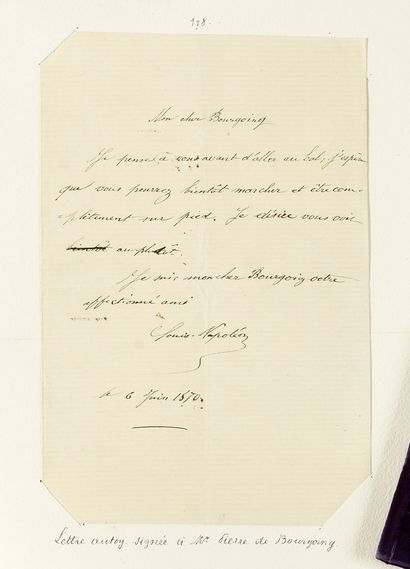 178.
Mon cher Bourgoing
Je pense à vous avant d'aller au bal, j'espère
que vous pourrez bientôt marcher et être com-
-plètement sur pied. Je désire vous voir
bientôt au plutôt.
Je suis mon cher Bourgoing votre
affectionné ami
Louis-Napoléon
le 6 Juin 1870.
Lettre autog. signée à Mr Pierre de Bourgoing.